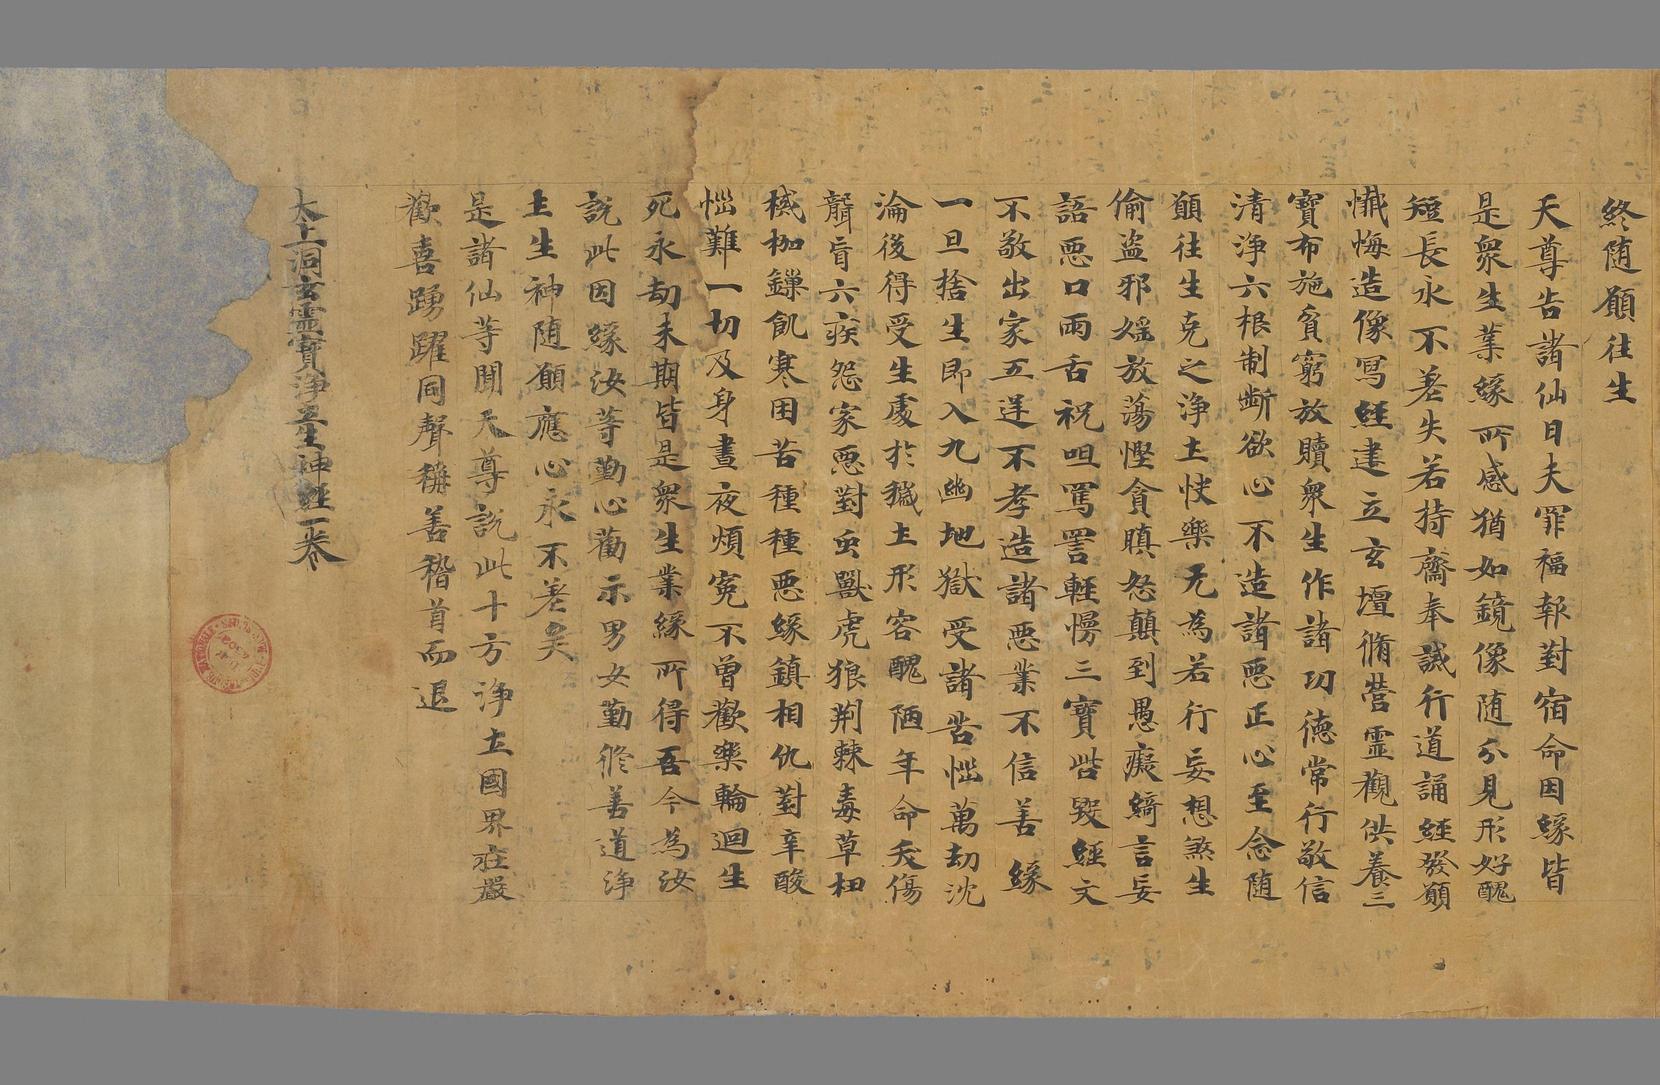 終随願往生
天尊告諸仙曰夫罪福報對宿命因緣皆
是衆生業緣所感猶如鏡像随形見形好醜
短長永不差失若持齋奉誡行道誦經發願
懺悔造像寫經建立玄壇脩營靈觀供養三
寶布施貧窮放贖衆生作諸功德常行敬信
清淨六根制斷欲心不造諸惡正心至念随
願往生克之淨土快樂无為若行妄想煞生
偷盜邪婬放蕩慳貪瞋怒顛到愚癡綺言妄
語惡口兩舌祝咀罵詈輕慢三寶呰毀經文
不敬出家五逆不孝造諸惡業不信善緣
一旦捨生即入九幽地獄受諸苦惱萬劫沈
淪後得受生處於穢土形容醜陋年命夭傷
聾盲六疾怨家惡對虫獸虎狼荆棘毒草杻
械枷鏁飢寒困苦種種惡緣鎮相仇對辛酸
惱難一切及身晝夜煩冤不曾歡樂輪迴生
死永劫未期皆是衆生業緣所得吾今為汝
說此因緣汝等勤心勸示男女勤脩善道淨
土生神随願應心永不差矣
是諸仙等聞天尊說此十方淨土國界莊嚴
歡喜踴躍同聲稱善稽首而退
太上洞玄靈寶淨土生神經一卷